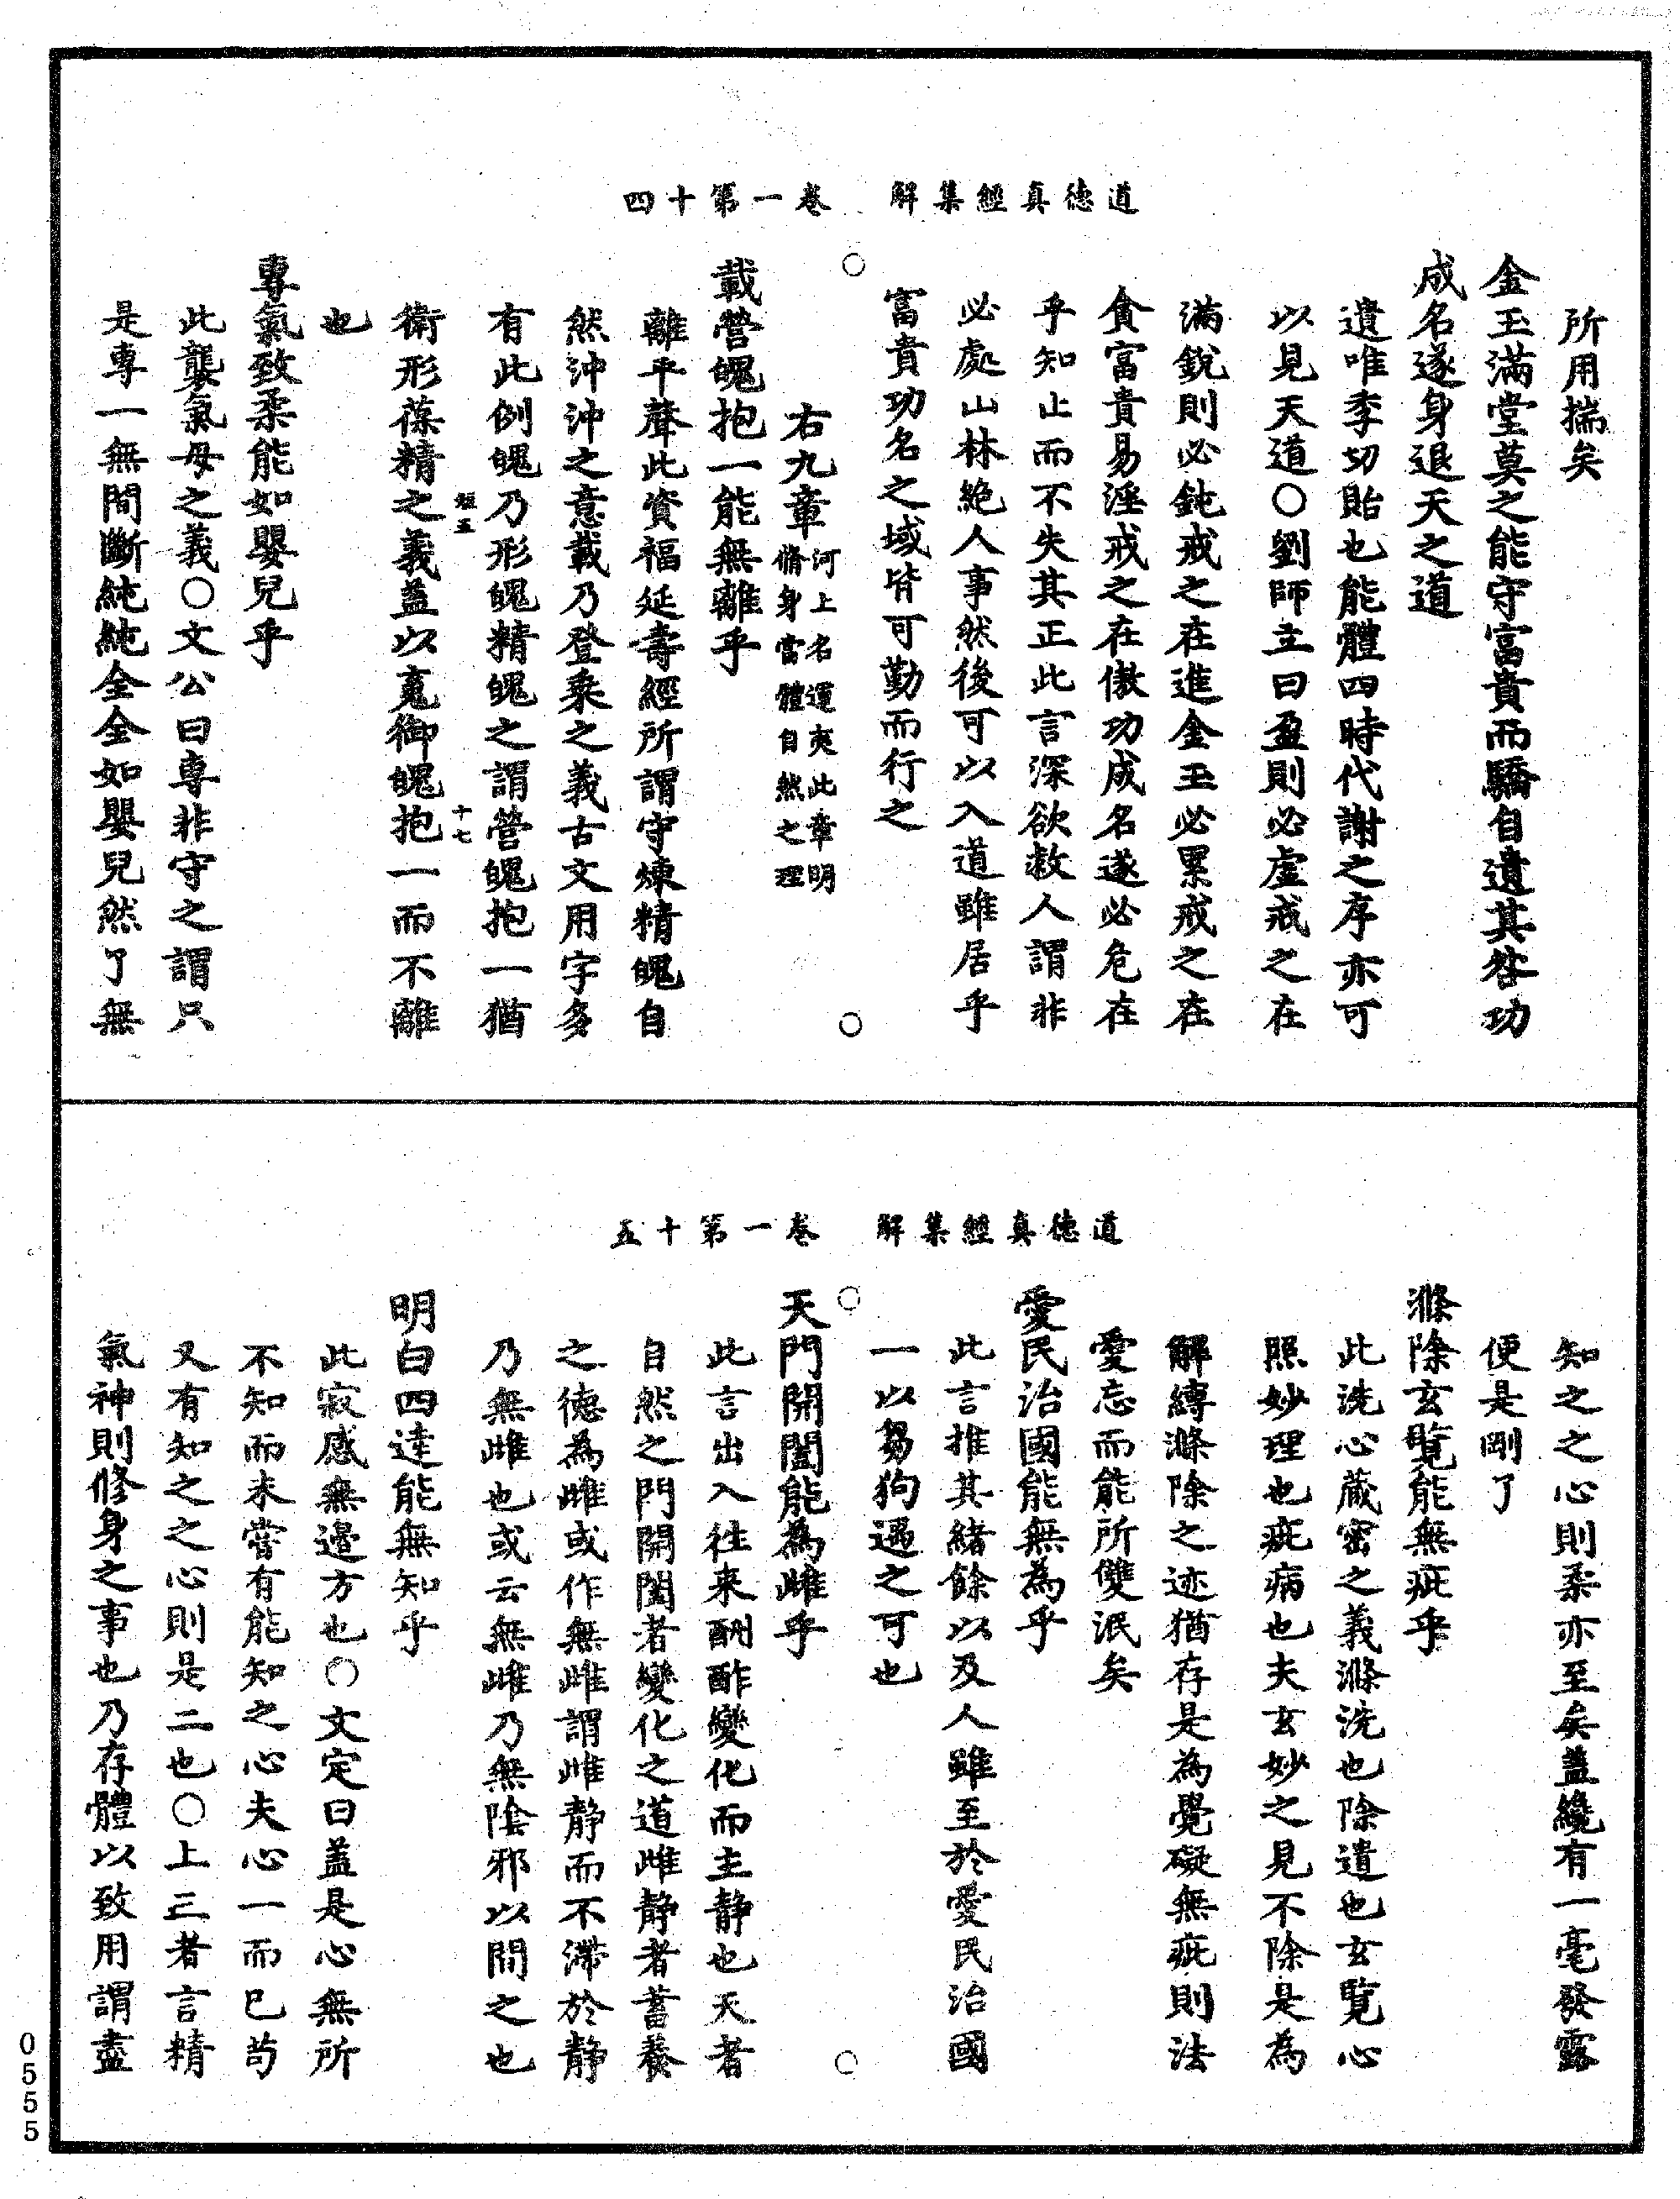 道德真經集解　卷一第十四
所用揣矣
金玉滿堂莫之能守富貴而驕自遺其咎功
成名遂身退天之道
遺唯季切貽也能體四時代謝之序亦可
以見天道○劉師立曰盈則必虛戒之在
滿銳則必鈍戒之在進金玉必累戒之在
貪富貴易淫戒之在傲功成名遂必危在
乎知止而不失其正此言深欲救人謂非
必處山林絶人事然後可以入道雖居乎
富貴功名之域皆可勤而行之
右九章河上名運夷此章明脩身當體自然之理
載營魄抱一能無離乎
離平聲此資福延壽經所謂守煉精魄自
然沖沖之意載乃登乘之義古文用字多
有此例魄乃形魄精魄之謂營魄抱一猶
衛形葆精之義盖以䰟御魄抱一而不離
也
短五　十七
專氣致柔能如嬰兒乎
此襲氣母之義○文公曰專非守之謂只
是專一無間斷純純全全如嬰兒然了無
道德真經集解　卷一第十五
知之之心則柔亦至矣盖纔有一毫發露
便是剛了
滌除玄覽能無疵乎
此洗心藏密之義滌洗也除遣也玄覽心
照妙理也疵病也夫玄妙之見不除是為
解縛滌除之迹猶存是為覺礙無疵則法
愛忘而能所雙泯矣
愛民治國能無為乎
此言推其緒餘以及人雖至於愛民治國
一以芻狗遇之可也
天門開闔能為雌乎
此言出入往来酬酢變化而主静也天者
自然之門開闔者變化之道雌静者蓄養
之德為雌或作無雌謂雌静而不滯於静
乃無雌也或云無雌乃無陰邪以間之也
明白四達能無知乎
此寂感無邉方也○文定曰盖是心無所
不知而未嘗有能知之心夫心一而已苟
又有知之之心則是二也○上三者言精
氣神則修身之事也乃存體以致用謂盡
0555